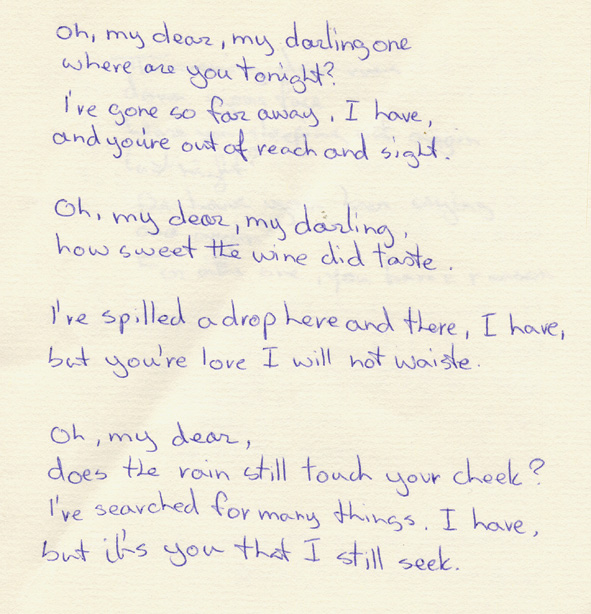 Oh, my dear, my darling one
where are you tonight?
I've gone so far away, I have,
and you're out of reach and sight.
Oh, my dear, my darling,
how sweet the wine did taste.
I've spilled a drop here and there, I have,
but you're love I will not waiste.
Oh, my dear,
does the rain still touch your cheek?
I've searched for many things, I have,
but it's you that I still seek.